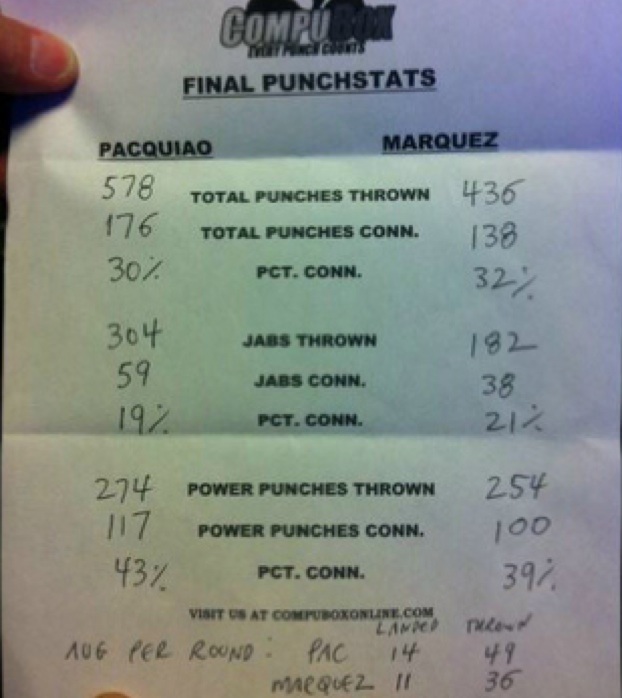 COMPUBOX
EVERY PUNCH COUNTS
FINAL PUNCHSTATS
PACQUIAO MARQUEZ
578 TOTAL PUNCHES THROWN 436
176 TOTAL PUNCHES CONN. 138
30% PCT. CONN. 32%
304 JABS THROWN 182
59 JABS CONN. 38
19% PCT. CONN. 21%
274 POWER PUNCHES THROWN 254
117 POWER PUNCHES CONN. 100
43% PCT. CONN. 39%
VISIT US AT COMPUBOXONLINE.COM
LANDED THROWN
AVG PER ROUND: PAC 14 49
MARQUEZ 11 36